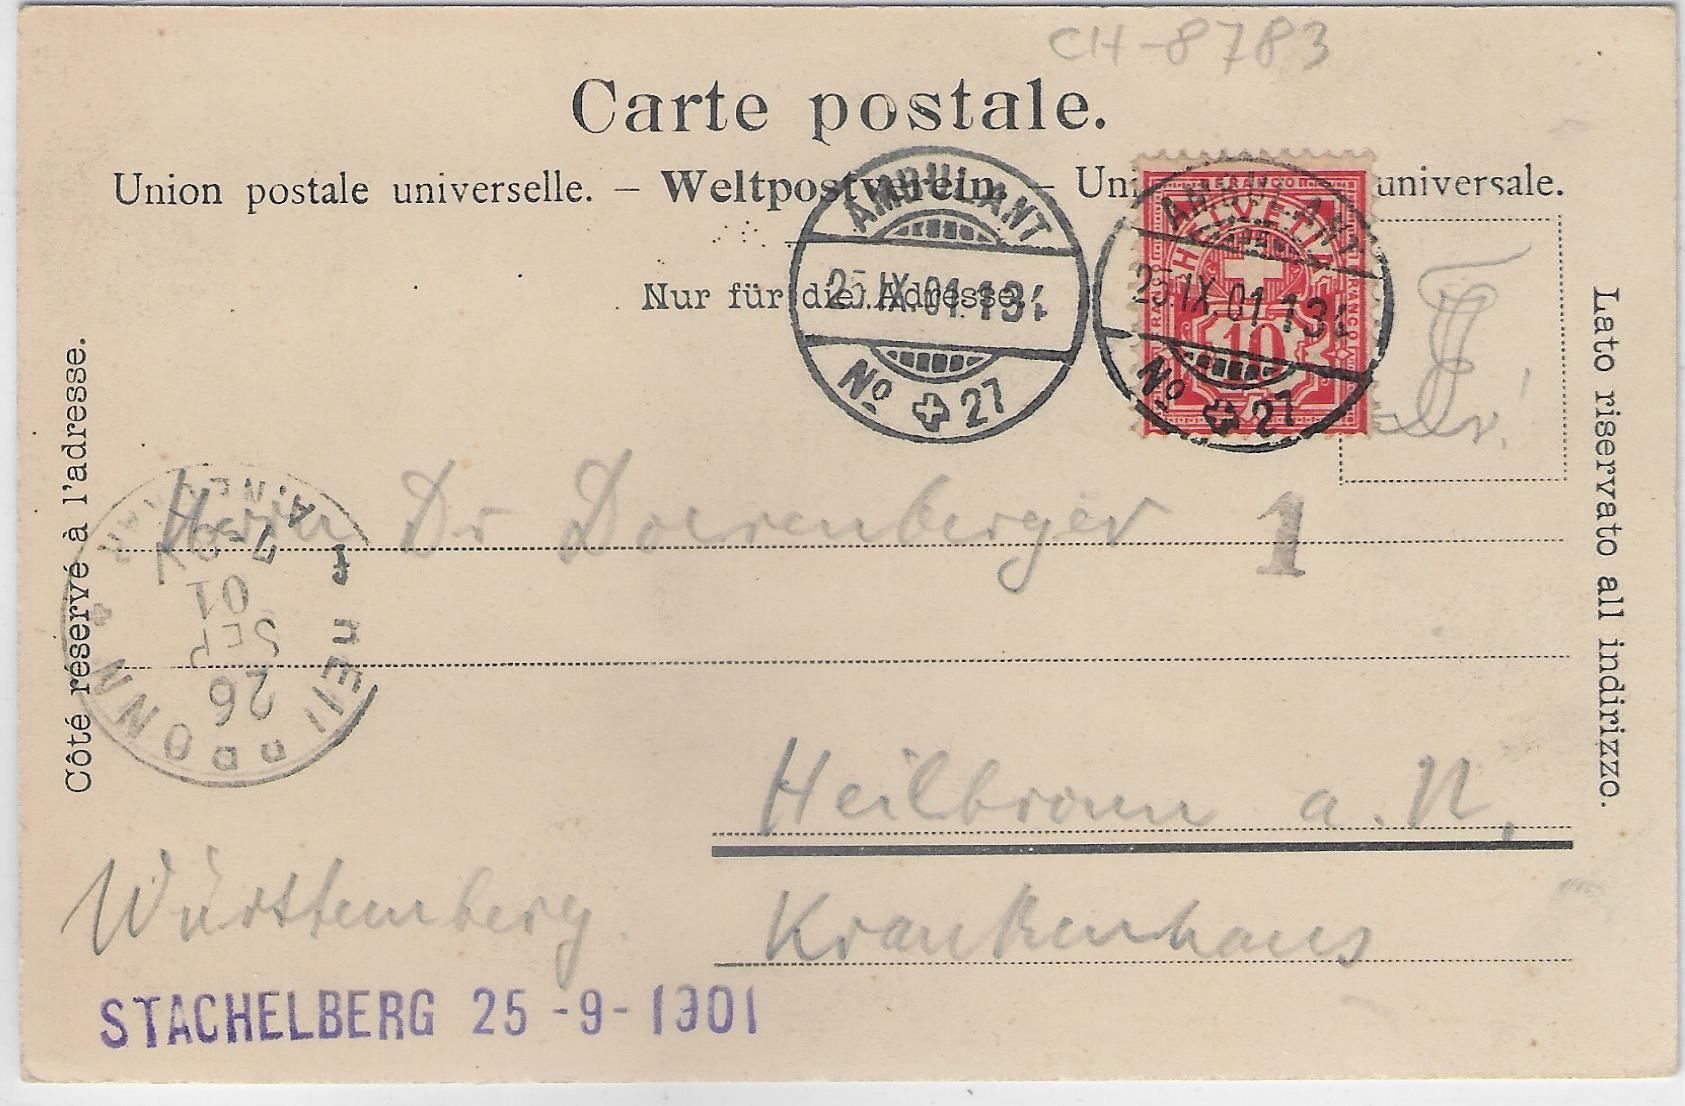 CH-8783
Carte postale.
Union postale universelle. – Weltpostverein. – Uni universale.
Nur für die Adresse.
AMBULANT
25.IX.01.13
No 27
AMBULANT
25.IX.01 13
No 27
FRANCO
HELVETIA
10
Côté réservé à l'adresse.
Lato riservato all indirizzo.
Herrn Dr Doerenberger
1
26
SEP
01
Heilbronn a. N.
Württemberg.
Krankenhaus
STACHELBERG 25-9-1901